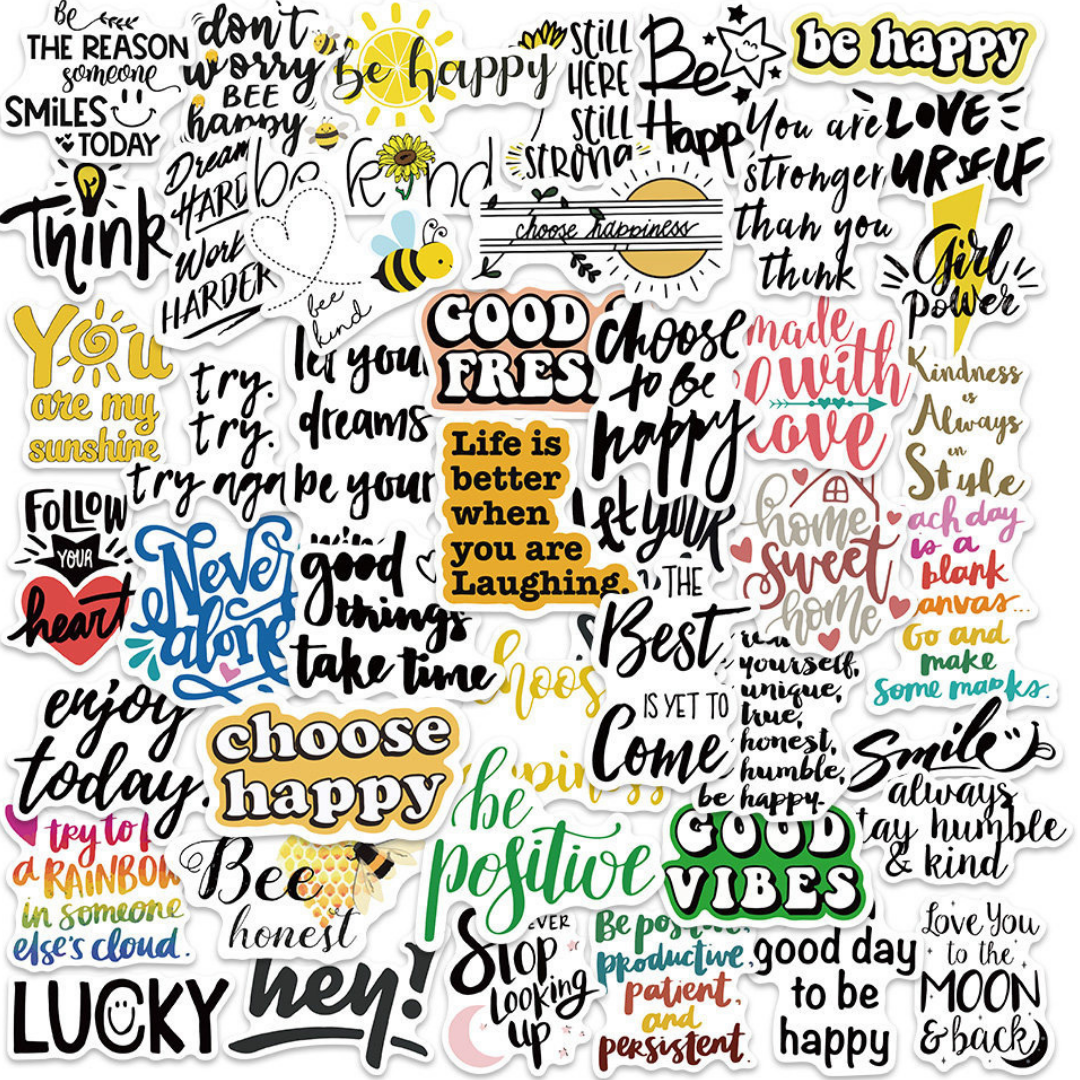 Be
THE REASON
someone
SMiLES
TODAY
don't
worry
BEE
happy
be happy
STILL
HERE
STILL
STRONG
Be
Happ
be happy
LOVE
URSELF
You are
stronger
than you
think
Think
Dream
HARD
Work
HARDER
be kind
bee
kind
choose happiness
Girl
power
You
are my
sunshine
try.
try.
try aga
let your
dreams
be your
GOOD
FRES
choose
to be
happy
made
with
love
Kindness
is
Always
in
Style
FOLLOW
YOUR
heart
Never
alone
good
things
take time
Life is
better
when
you are
Laughing.
let your
THE
Best
IS YET TO
Come
home
sweet
home
ach day
is a
blank
anvas...
Go and
make
some marks.
enjoy
today.
choose
happy
hoos
pin
yourself,
unique,
true,
honest,
humble,
be happy.
Smile
always
tay humble
& kind
try to b
a RAINBOW
in someone
else's cloud.
Bee
honest
be
positive
GOOD
VIBES
LUCKY
hey!
EVER
STOP
LOOKING
UP
Be pos
productive,
patient,
and
persistent.
good day
to be
happy
Love You
to the
MOON
& back